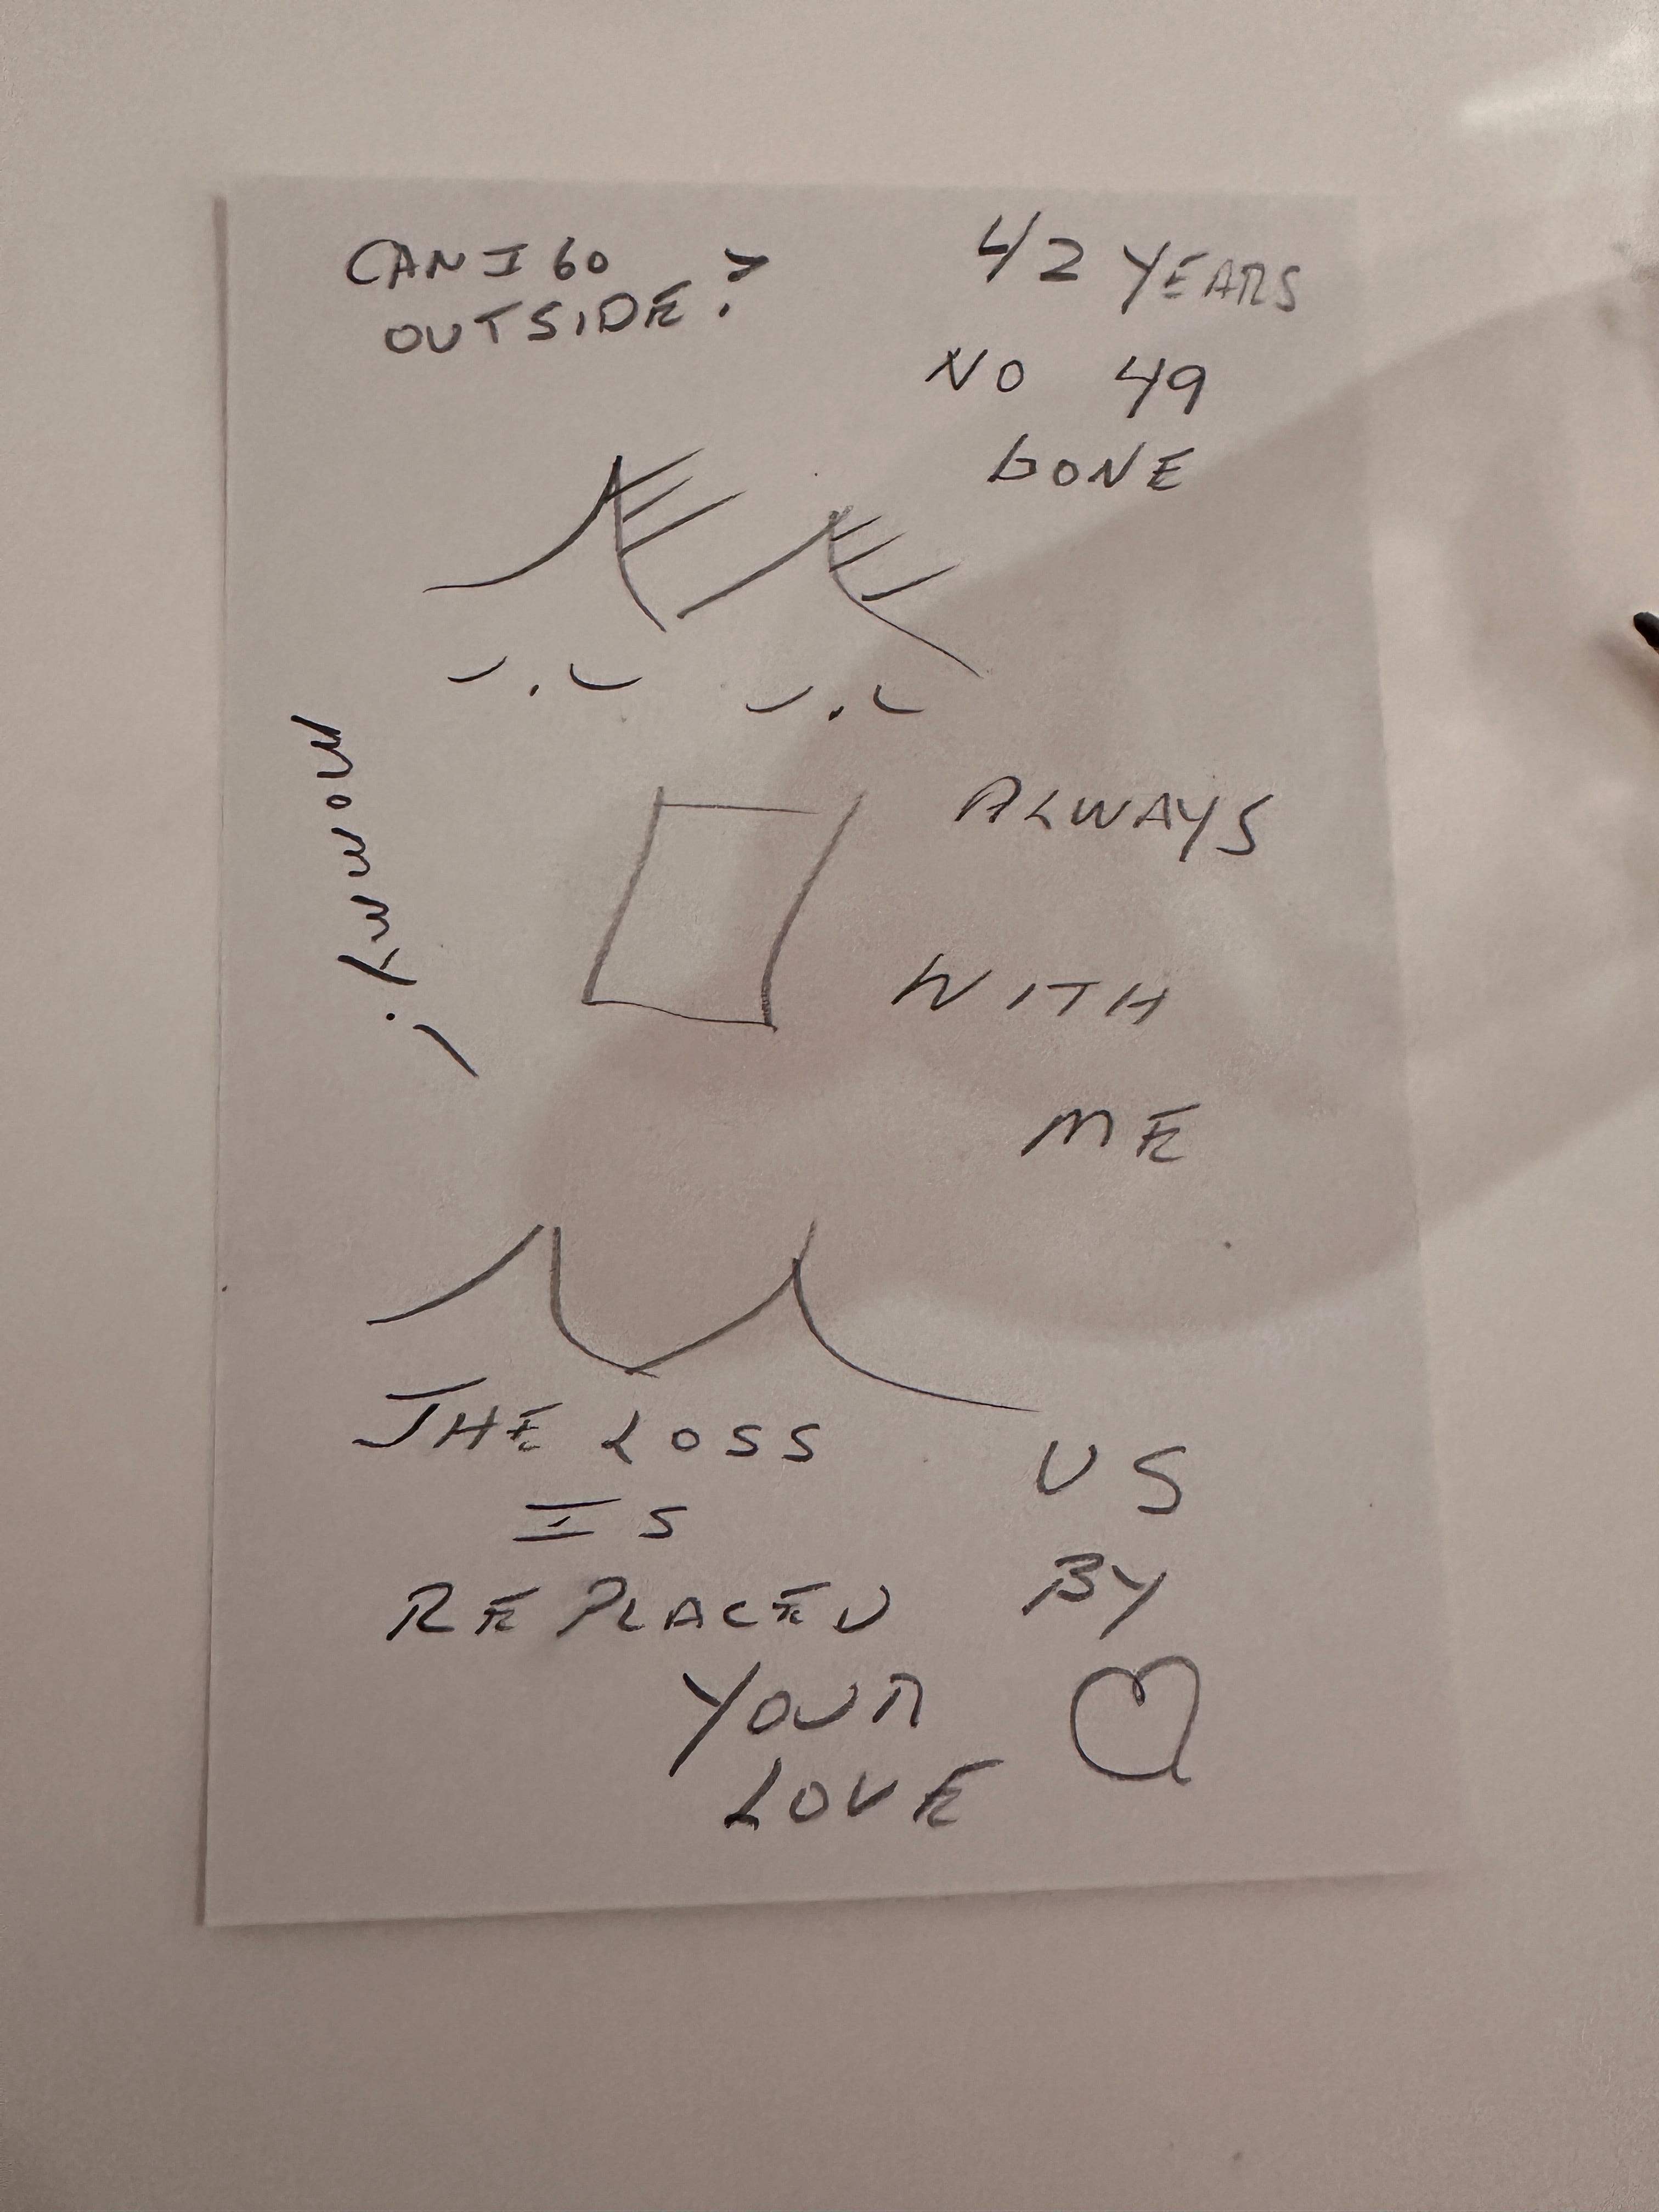 CAN I GO
OUTSIDE?
42 YEARS
NO 49
GONE
MOMMY!
ALWAYS
WITH
ME
THE LOSS
IS
REPLACED
YOUR
LOVE
US
BY